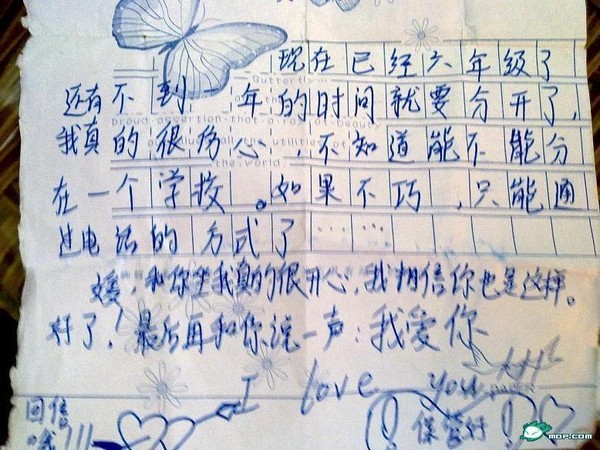 现在已经六年级了
还有不到一年的时间就要分开了,
我真的很伤心,不知道能不能分
在一个学校。如果不巧,只能通
过电话的方式了……
Butterfly
proud assertion that a ray of beauty
utilities of
the world
媛,和你坐我真的很开心,我相信你也是这样。
好了!最后再和你说一声:我爱你
I love you
回信
哦!!!
保管好
mop.com